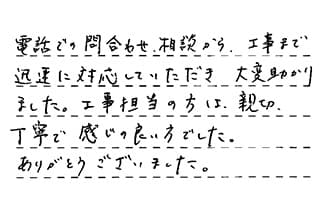 電話での問合わせ、相談から、工事まで
迅速に対応していただき 大変助かり
ました。工事担当の方は、親切、
丁寧で 感じの良い方でした。
ありがとうございました。